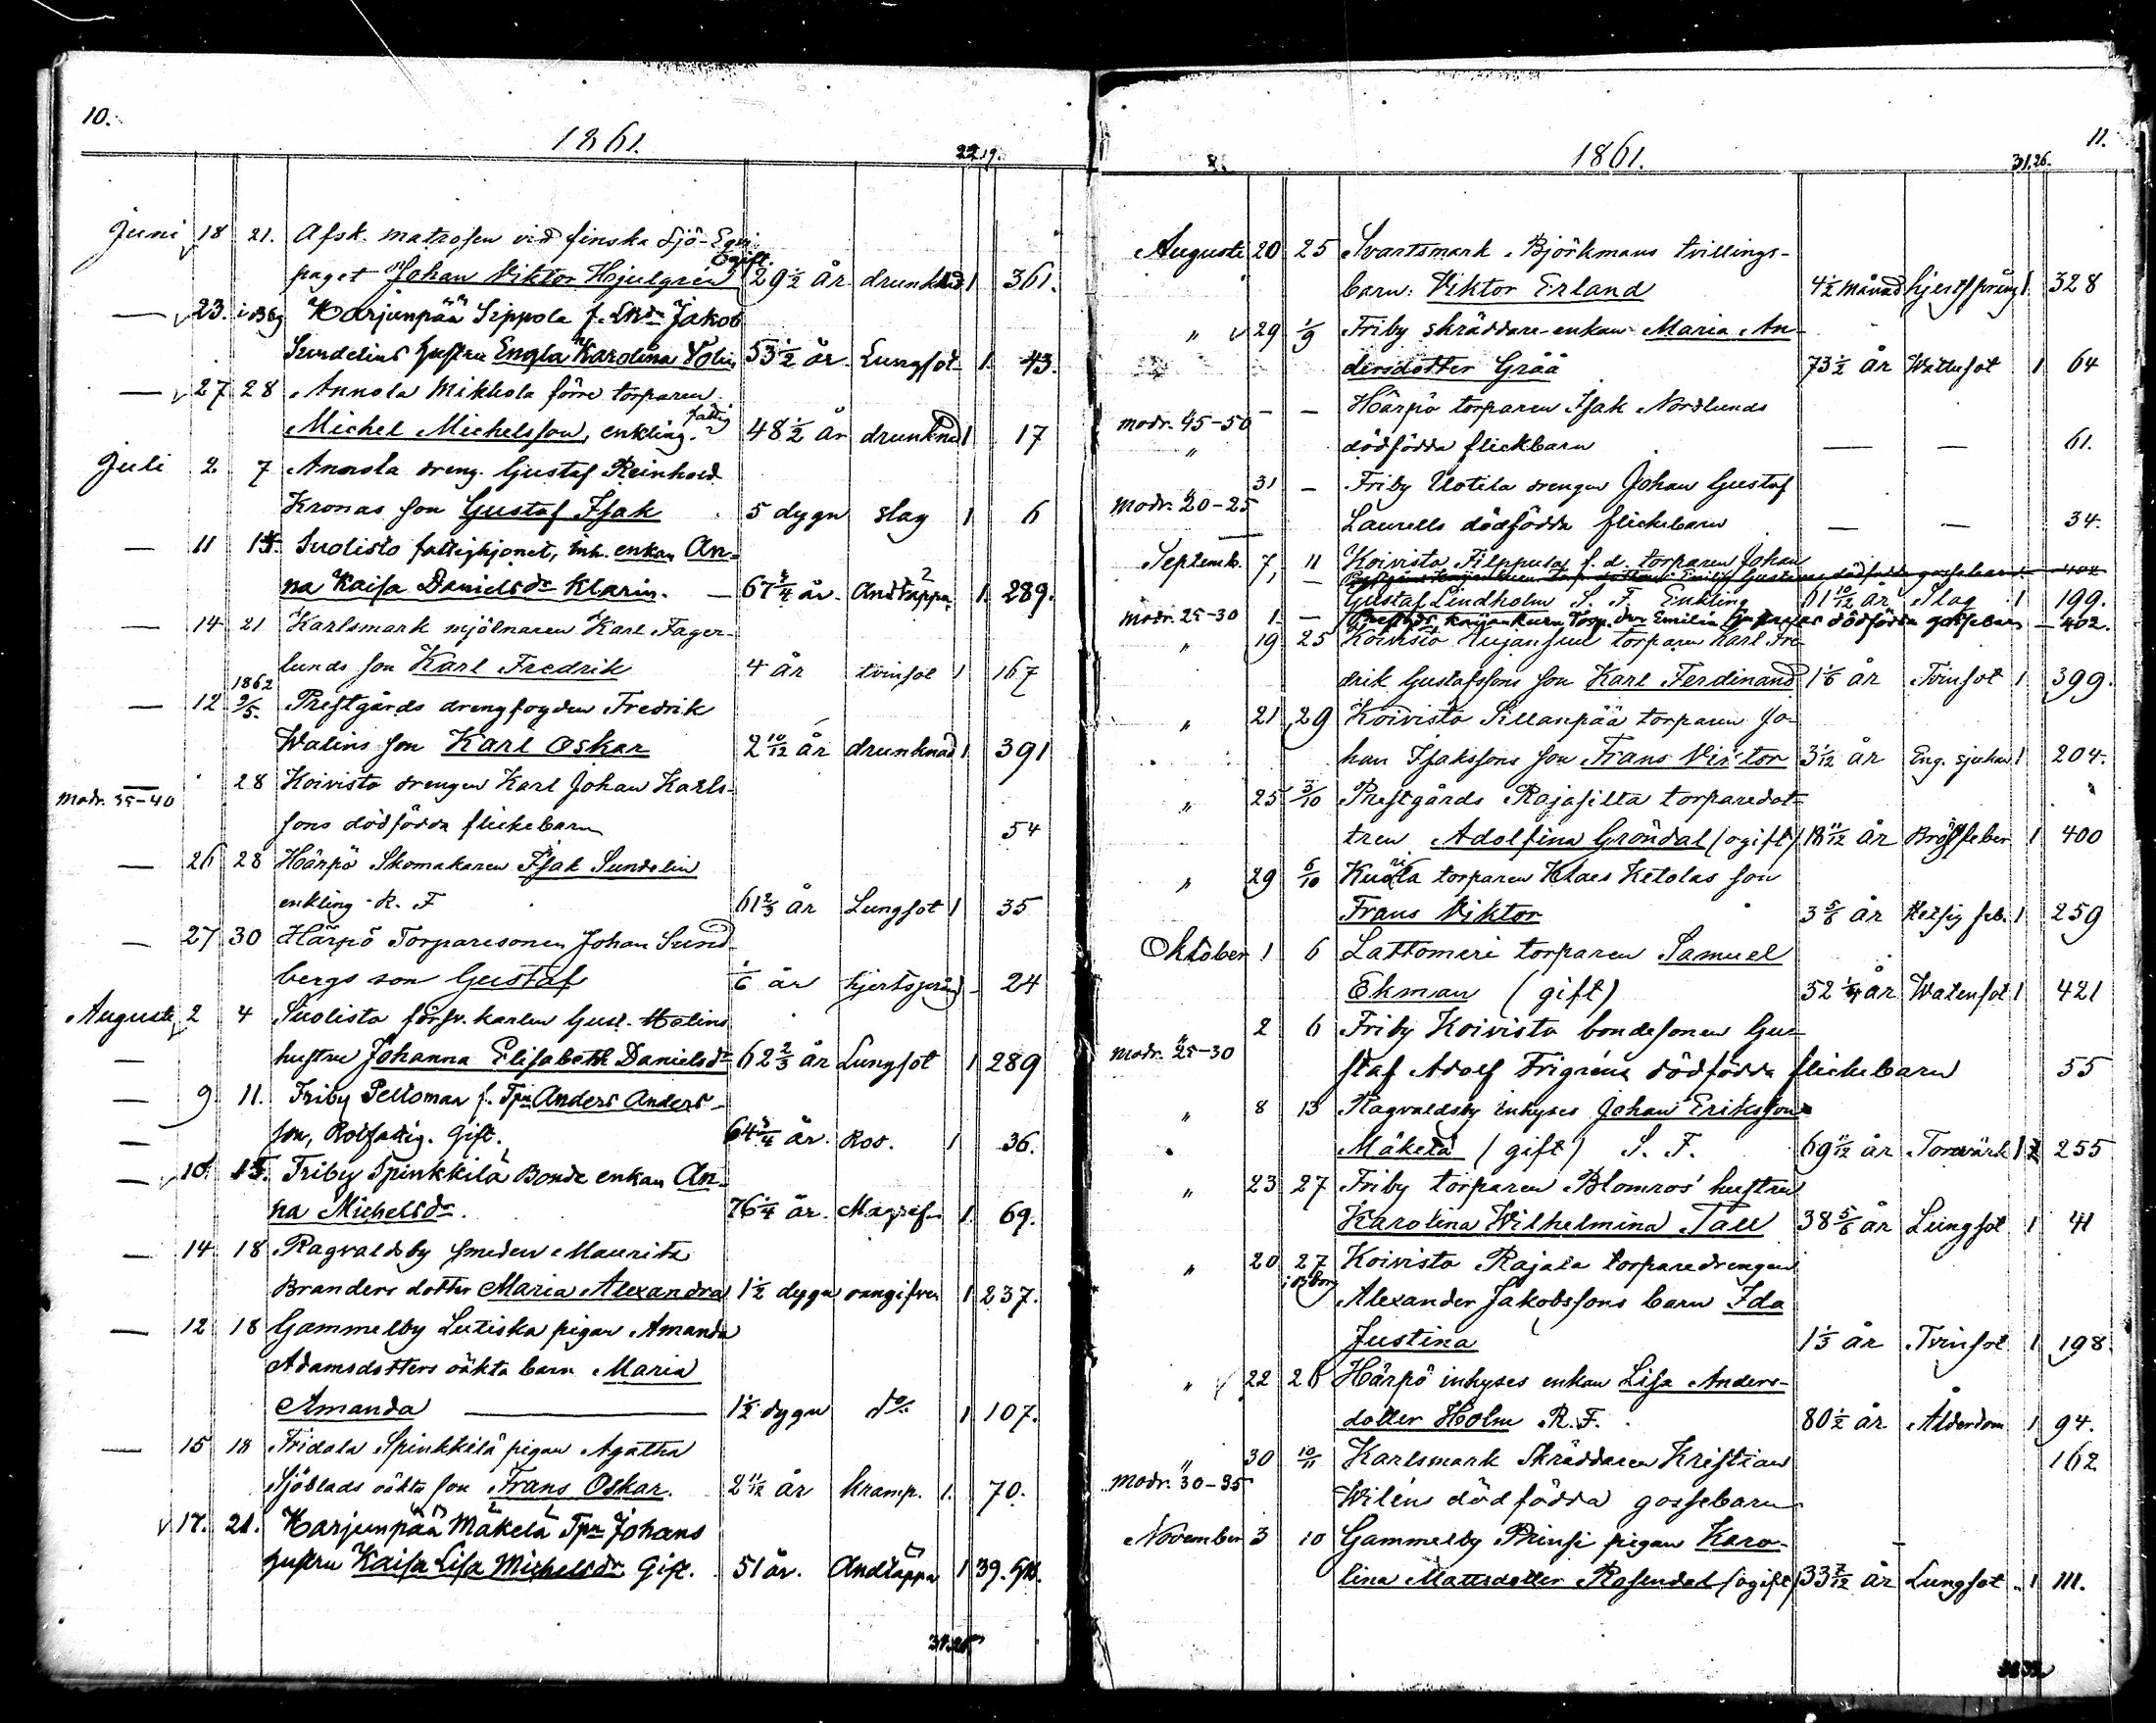 10.
1861.
22.19.
Juni 18 21. Afsk. matrosen vid finska Sjö-Equi-
Ogift.
paget Johan Viktor Hjulgrén 29 1/2 år drunknad 1 361.
— 23. Harjunpää Sippola f. Jakob
Sundelius hustru Engla Karolina 53 1/2 år Lungsot 1. 43.
— 27 28 Annola Mikkola förre torparen
Michel Michelsson, enkling. fattig 48 1/2 år drunknad 1 17
Juli 2 7 Annola dreng. Gustaf Reinhold
Kronas son Gustaf Isak 5 dygn slag 1 6
— 11 14. Suolisto fattighjonet, inh. enkan An-
na Kaisa Danielsdr Klarin. — 67 3/4 år. Andtäppa 1. 289.
— 14 21 Karlsmark mjölnaren Karl Fager-
lunds son Karl Fredrik 4 år tvinsot 1 167
1862
— 12 9/5. Prestgårds drengfogden Fredrik
Walins son Karl Oskar 2 10/12 år drunknad 1. 391
— 28 Koivisto drengen Karl Johan Karls-
modr. 35-40
sons dödfödda flickebarn 54
— 26 28 Härpö Skomakaren Isak Sundelin
enkling - R. F 61 2/3 år Lungsot 1 35
— 27 30 Härpö Torparesonen Johan Sund-
bergs son Gustaf 1/6 år hjertsprång - 24
Augusti 2 4 Suolisto försv. karlen Gust. Malins
— hustru Johanna Elisabeth Danielsdr 62 2/3 år Lungsot 1 289
— 9 11. Friby Peltomaa f. Tpn Anders Anders-
— son, Rotfattig. Gift. 64 3/4 år. Ros. 1 36.
— 10. 15. Friby Spinkkilä Bonde enkan An-
na Michelsdr. 76 1/4 år. Magref. 1. 69.
— 14 18 Ragvaldsby smeden Mauritz
Branders dotter Maria Alexandra 1 1/2 dygn oangifven 1 237.
— 12 18 Gammelby Lutiska pigan Amanda
Adamsdotters oäkta barn Maria
Amanda — 1 1/2 dygn do 1 107.
— 15 18 Fridala Spinkkilä pigan Agatha
Sjöblads oäkta son Frans Oskar. 2 11/12 år kramp. 1. 70.
17. 21. Harjunpää Mäkelä Tpn Johans
hustru Kaisa Lisa Michelsdr. Gift. 51 år. Andtäppa 1 39.
11.
1861.
31.26.
Augusti 20 25 Svartsmark Björkmans tvillings-
barn: Viktor Erland 4 1/2 månad hjertsprång 1. 328
" 29 1/9 Friby skräddare-enkan Maria An-
dersdotter Gråå 73 1/2 år Wattusot 1 64
" — — Härpö torparen Isak Nordlunds
modr. 45-50
dödfödda flickbarn — — 61.
" 31 — Friby Uotila drengen Johan Gustaf
modr. 20-25
Laurells dödfödda flickebarn — — 34.
Septemb. 7, 11 Koivisto Filppulas f. d. torparen Johan
Gustaf Lindholm S. F. Enkling 61 10/12 år Slag 1 199.
modr. 25-30 1. — Emilia dödfödda gossebarn — 402.
" 19 25 Koivisto torparen Karl Fre-
drik Gustafssons son Karl Ferdinand 1 1/6 år Tvinsot 1 399.
" 21 29 Koivisto Sillanpää torparen Jo-
han Isakssons son Frans Viktor 3 1/12 år Eng. sjukan 1 204.
" 25 3/10 Prestgårds Rajasilta torparedot-
tren Adolfina Gröndal (ogift) 18 11/12 år Bröstfeber 1 400
" 29 6/10 torparen Klaes Ketolas son
Frans Viktor 3 5/6 år Hetsig feb. 1 259
Oktober 1 6 Lattomeri torparen Samuel
Ekman (gift) 52 1/4 år Watensot 1 421
" 2 6 Friby Koivisto bondesonen Gu-
modr. 25-30
staf Adolf Frigréns dödfödda flickebarn 55
" 8 13 Ragvaldsby inhyses Johan Eriksson
Mäkelä (gift) S. F. 69 11/12 år Torrvärk 1 255
" 23 27 Friby torparen Blomros' hustru
Karolina Wilhelmina Tall 38 5/6 år Lungsot 1 41
" 20 27 Koivisto Rajala torparedrengen
i Bborg
Alexander Jakobssons barn Ida
Justina 1 1/3 år Tvinsot 1 198.
" 22 28 Härpö inhyses enkan Lisa Anders-
dotter Holm R. F. 80 1/2 år Ålderdom 1 94.
" 30 10/11 Karlsmark Skräddaren Kristian 162
modr. 30-35
Wiléns dödfödda gossebarn
November 3 10 Gammelby Prinsi pigan Karo-
lina Mattsdotter Rosendal (ogift) 33 7/12 år Lungsot 1 111.